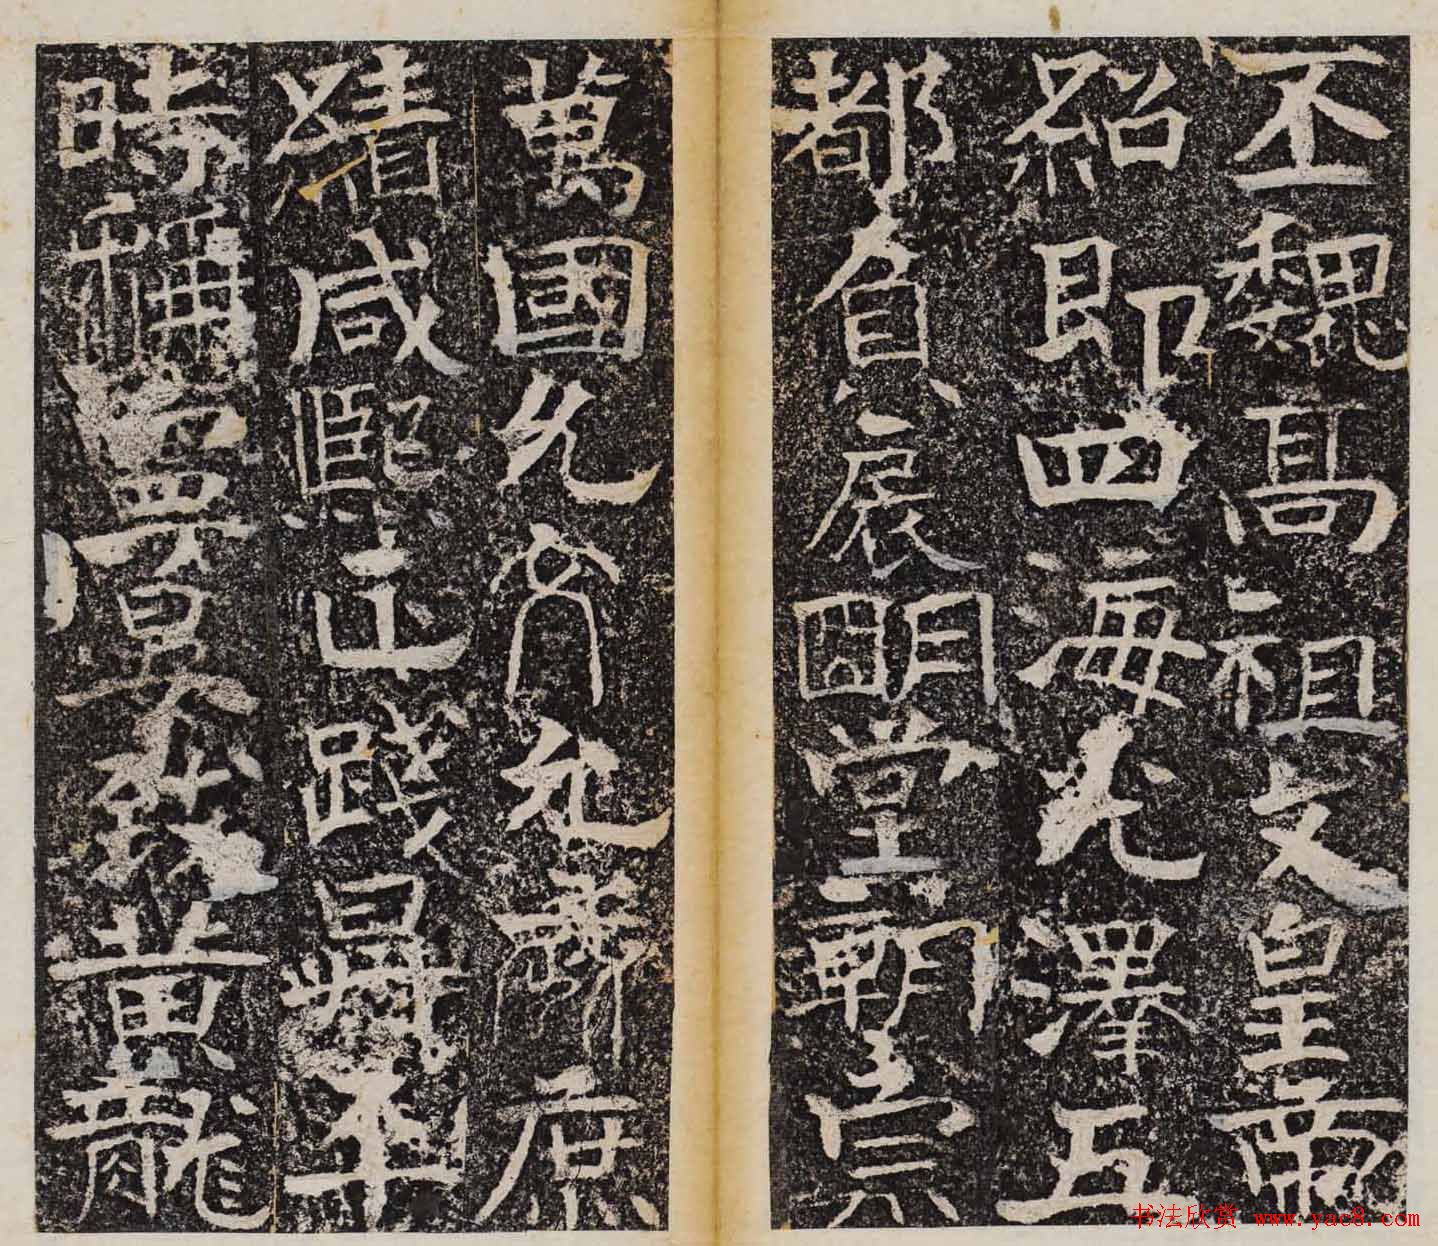 丕魏高祖文皇帝
紹即四海光澤五
都負扆明堂朝宗
萬國允允庶
績咸熙正踐昇平
時稱寧晏致黃龍
书法欣赏 www.yac8.com